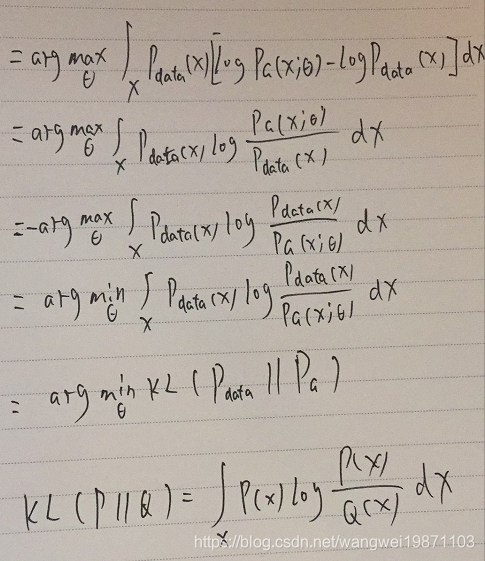 = arg max_θ ∫_x P_data(x)[log P_G(x;θ) - log P_data(x)] dx
= arg max_θ ∫_x P_data(x) log P_G(x;θ) / P_data(x) dx
= - arg max_θ ∫_x P_data(x) log P_data(x) / P_G(x;θ) dx
= arg min_θ ∫_x P_data(x) log P_data(x) / P_G(x;θ) dx
= arg min_θ KL ( P_data || P_G )
KL ( P || Q ) = ∫_x P(x) log P(x) / Q(x) dx
https://blog.csdn.net/wangwei19871103